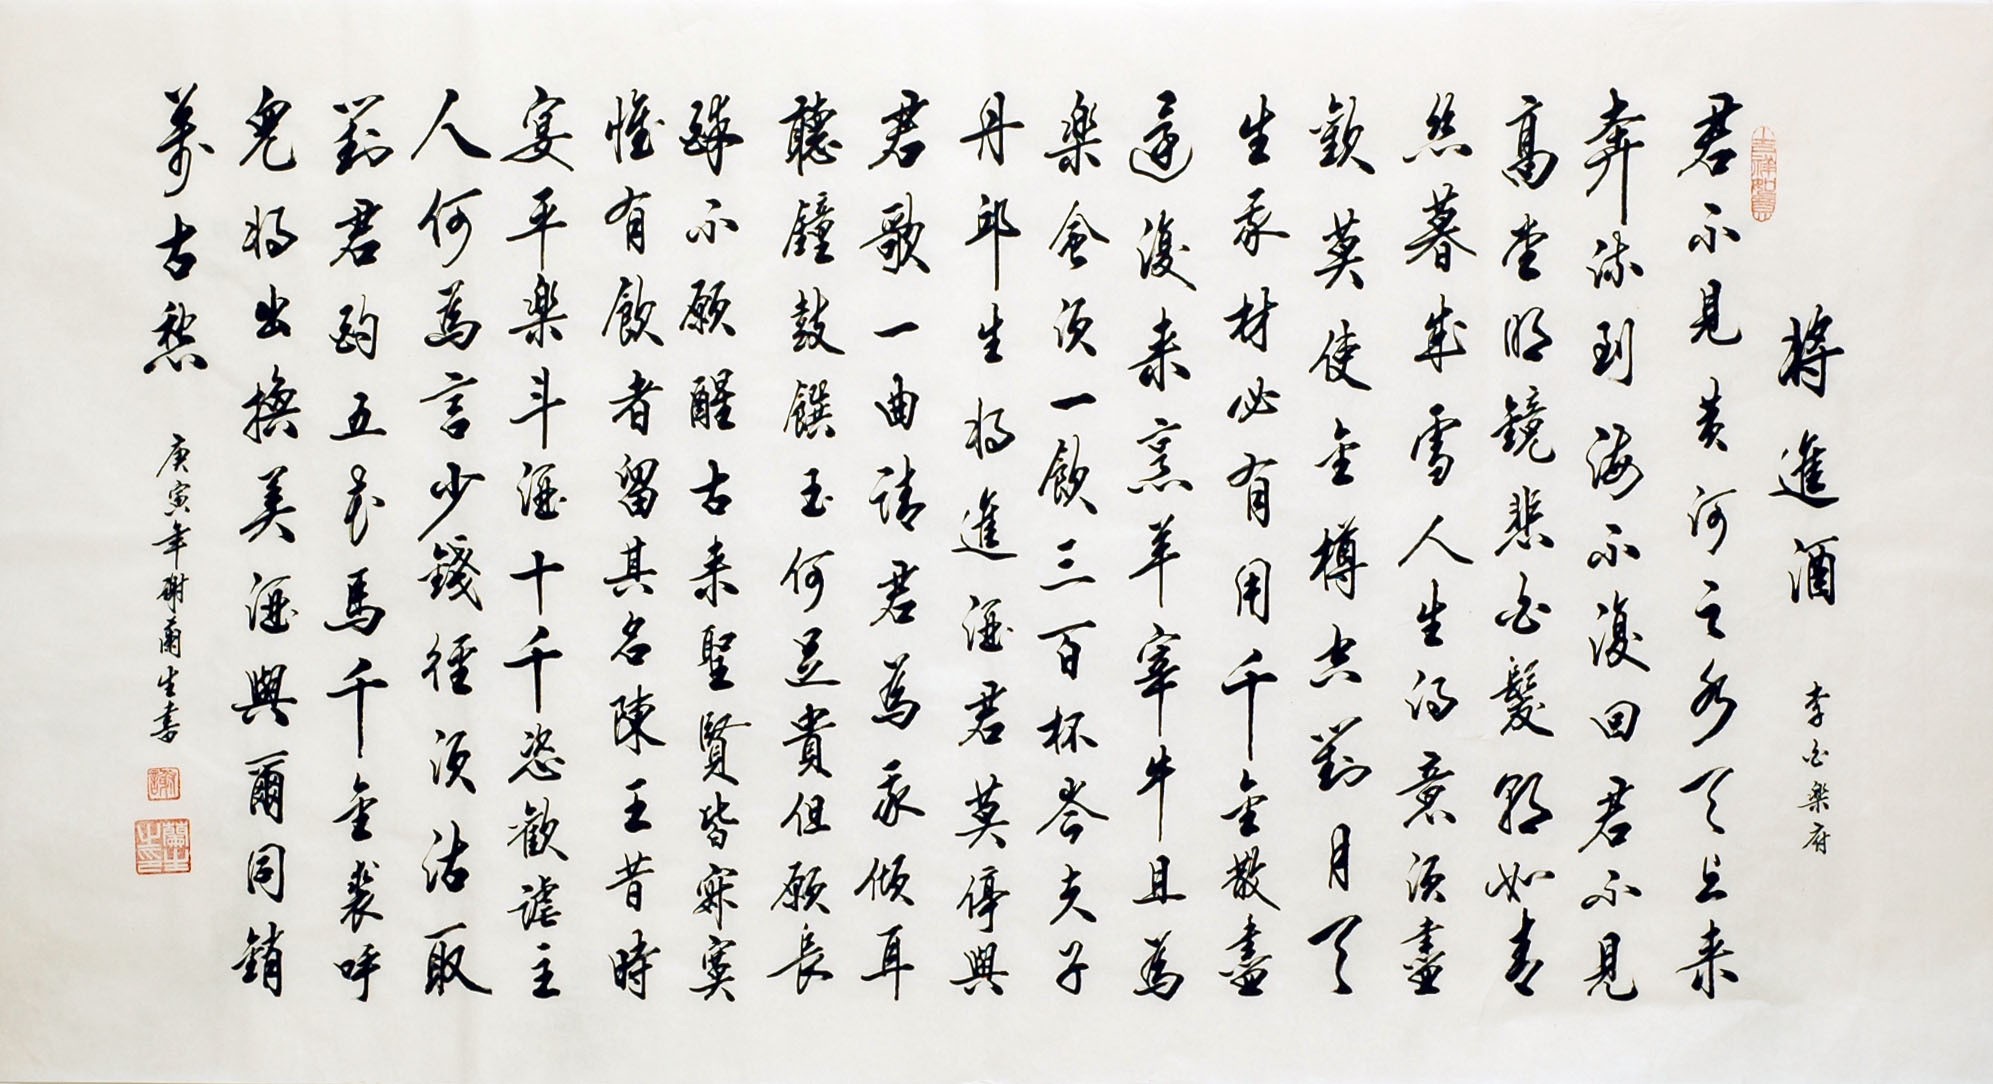 將進酒 李白樂府
吉祥如意
君不見黃河之水天上来
奔流到海不復回君不見
高堂明鏡悲白髮朝如青
絲暮成雪人生得意須盡
歡莫使金樽空對月天
生我材必有用千金散盡
還復来烹羊宰牛且為
樂會須一飲三百杯岑夫子
丹邱生將進酒君莫停與
君歌一曲請君為我傾耳
聽鐘鼓饌玉何足貴但願長
醉不願醒古来聖賢皆寂寞
惟有飲者留其名陳王昔時
宴平樂斗酒十千恣歡謔主
人何為言少錢徑須沽取
對君酌五花馬千金裘呼
兒將出換美酒與爾同銷
萬古愁
庚寅年謝蘭生書
謝
蘭生之印